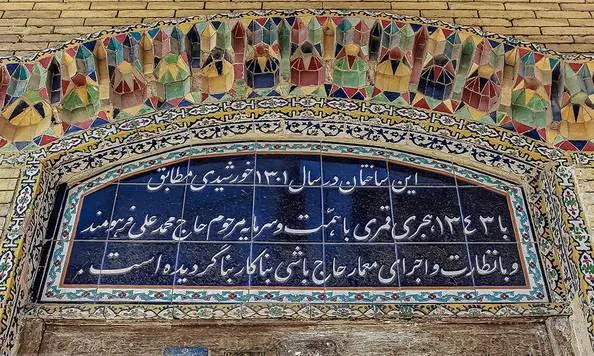 این ساختمان در سال ۱۳۰۱ خورشیدی مطابق
با ۱۳۴۳ هجری قمری با همّت و سرمایه مرحوم حاج محمد علی فرهومند
و با نظارت و اجرای معمار حاج باشی بناکار بنا گردیده است.